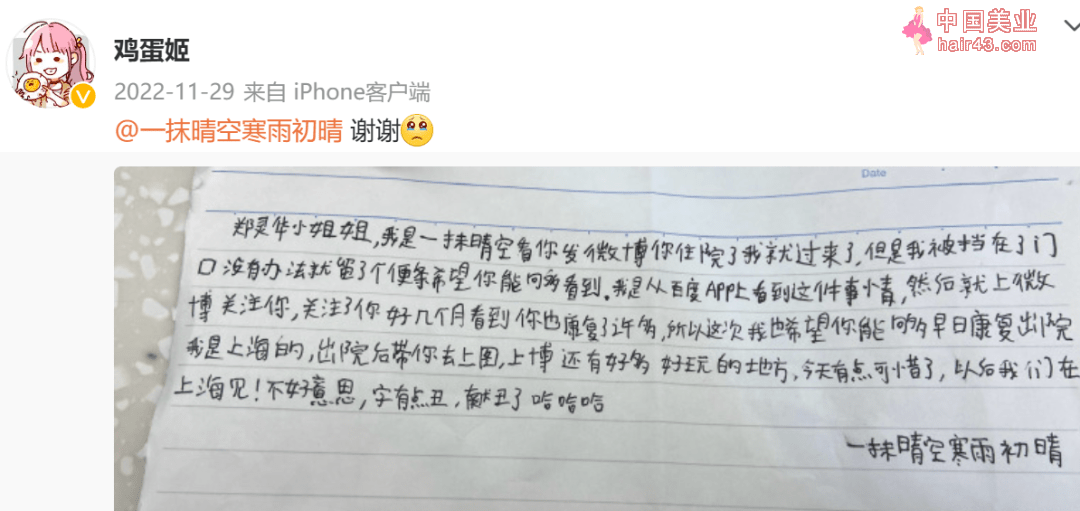 中国美业
hair43.com
鸡蛋姬
2022-11-29 来自 iPhone客户端
@一抹晴空寒雨初晴 谢谢🥺
Date
郑灵华小姐姐，我是一抹晴空看你发微博你住院了我就过来了，但是我被挡在了门
口没有办法就留了个便条希望你能够看到。我是从百度APP上看到这件事情，然后就上微
博关注你，关注了你好几个月看到你也康复了许多，所以这次我也希望你能够早日康复出院
我是上海的，出院后带你去上图，上博还有好多好玩的地方，今天有点可惜了，以后我们在
上海见！不好意思，字有点丑，献丑了哈哈哈
一抹晴空寒雨初晴